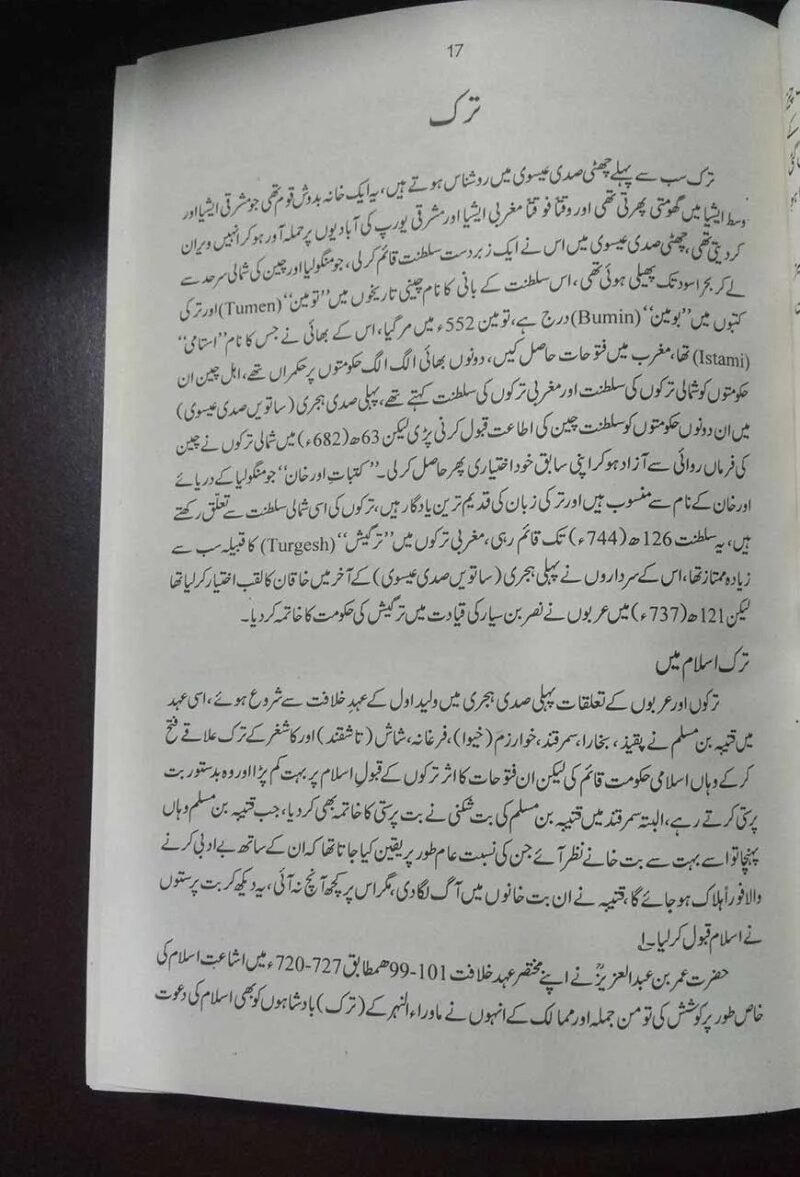 17
ترک
ترک سب سے پہلے چھٹی صدی عیسوی میں روشناس ہوتے ہیں، یہ ایک خانہ بدوش قوم تھی جو مشرقی ایشیا اور
وسط ایشیا میں گھومتی پھرتی تھی اور وقتاً فوقتاً مغربی ایشیا اور مشرقی یورپ کی آبادیوں پر حملہ آور ہوکر انہیں ویران
کردیتی تھی، چھٹی صدی عیسوی میں اس نے ایک زبردست سلطنت قائم کرلی، جو منگولیا اور چین کی شمالی سرحد سے
لے کر بحر اسود تک پھیلی ہوئی تھی، اس سلطنت کے بانی کا نام چینی تاریخوں میں ’’تومین‘‘ (Tumen) اور ترکی
کتبوں میں ’’بومین‘‘ (Bumin) درج ہے، تومین 552ء میں مرگیا، اس کے بھائی نے جس کا نام ’’استامی‘‘
(Istami) تھا، مغرب میں فتوحات حاصل کیں، دونوں بھائی الگ الگ حکومتوں پر حکمراں تھے، اہل چین ان
حکومتوں کو شمالی ترکوں کی سلطنت اور مغربی ترکوں کی سلطنت کہتے تھے، پہلی صدی ہجری (ساتویں صدی عیسوی)
میں ان دونوں حکومتوں کو سلطنت چین کی اطاعت قبول کرنی پڑی لیکن 63ھ (682ء) میں شمالی ترکوں نے چین
کی فرماں روائی سے آزاد ہوکر اپنی سابق خود اختیاری پھر حاصل کرلی۔ ’’کتبات اورخان‘‘ جو منگولیا کے دریائے
اورخان کے نام سے منسوب ہیں اور ترکی زبان کی قدیم ترین یادگار ہیں، ترکوں کی اسی شمالی سلطنت سے تعلّق رکھتے
ہیں، یہ سلطنت 126ھ (744ء) تک قائم رہی، مغربی ترکوں میں ’’ترگیش‘‘ (Turgesh) کا قبیلہ سب سے
زیادہ ممتاز تھا، اس کے سرداروں نے پہلی ہجری (ساتویں صدی عیسوی) کے آخر میں خاقان کا لقب اختیار کرلیا تھا
لیکن 121ھ (737ء) میں عربوں نے نصر بن سیار کی قیادت میں ترگیش کی حکومت کا خاتمہ کردیا۔
ترک اسلام میں
ترکوں اور عربوں کے تعلقات پہلی صدی ہجری میں ولید اول کے عہد خلافت سے شروع ہوئے، اسی عہد
میں قتیبہ بن مسلم نے بیقند، بخارا، سمرقند، خوارزم (خیوا)، فرغانہ، شاش (تاشقند) اور کاشغر کے ترک علاقے فتح
کرکے وہاں اسلامی حکومت قائم کی لیکن ان فتوحات کا اثر ترکوں کے قبول اسلام پر بہت کم پڑا اور وہ بدستور بت
پرستی کرتے رہے، البتہ سمرقند میں قتیبہ بن مسلم کی بت شکنی نے بت پرستی کا خاتمہ بھی کردیا، جب قتیبہ بن مسلم وہاں
پہنچا تو اسے بہت سے بت خانے نظر آئے جن کی نسبت عام طور پر یقین کیا جاتا تھا کہ ان کے ساتھ بے ادبی کرنے
والا فوراً ہلاک ہوجائے گا، قتیبہ نے ان بت خانوں میں آگ لگادی، مگر اس پر کچھ آنچ نہ آئی، یہ دیکھ کر بت پرستوں
نے اسلام قبول کرلیا۔ 1
حضرت عمر بن عبدالعزیزؒ نے اپنے مختصر عہد خلافت 101-99ھ مطابق 727-720ء میں اشاعت اسلام کی
خاص طور پر کوشش کی تو من جملہ اور ممالک کے انہوں نے ماوراء النہر کے (ترک) بادشاہوں کو بھی اسلام کی دعوت